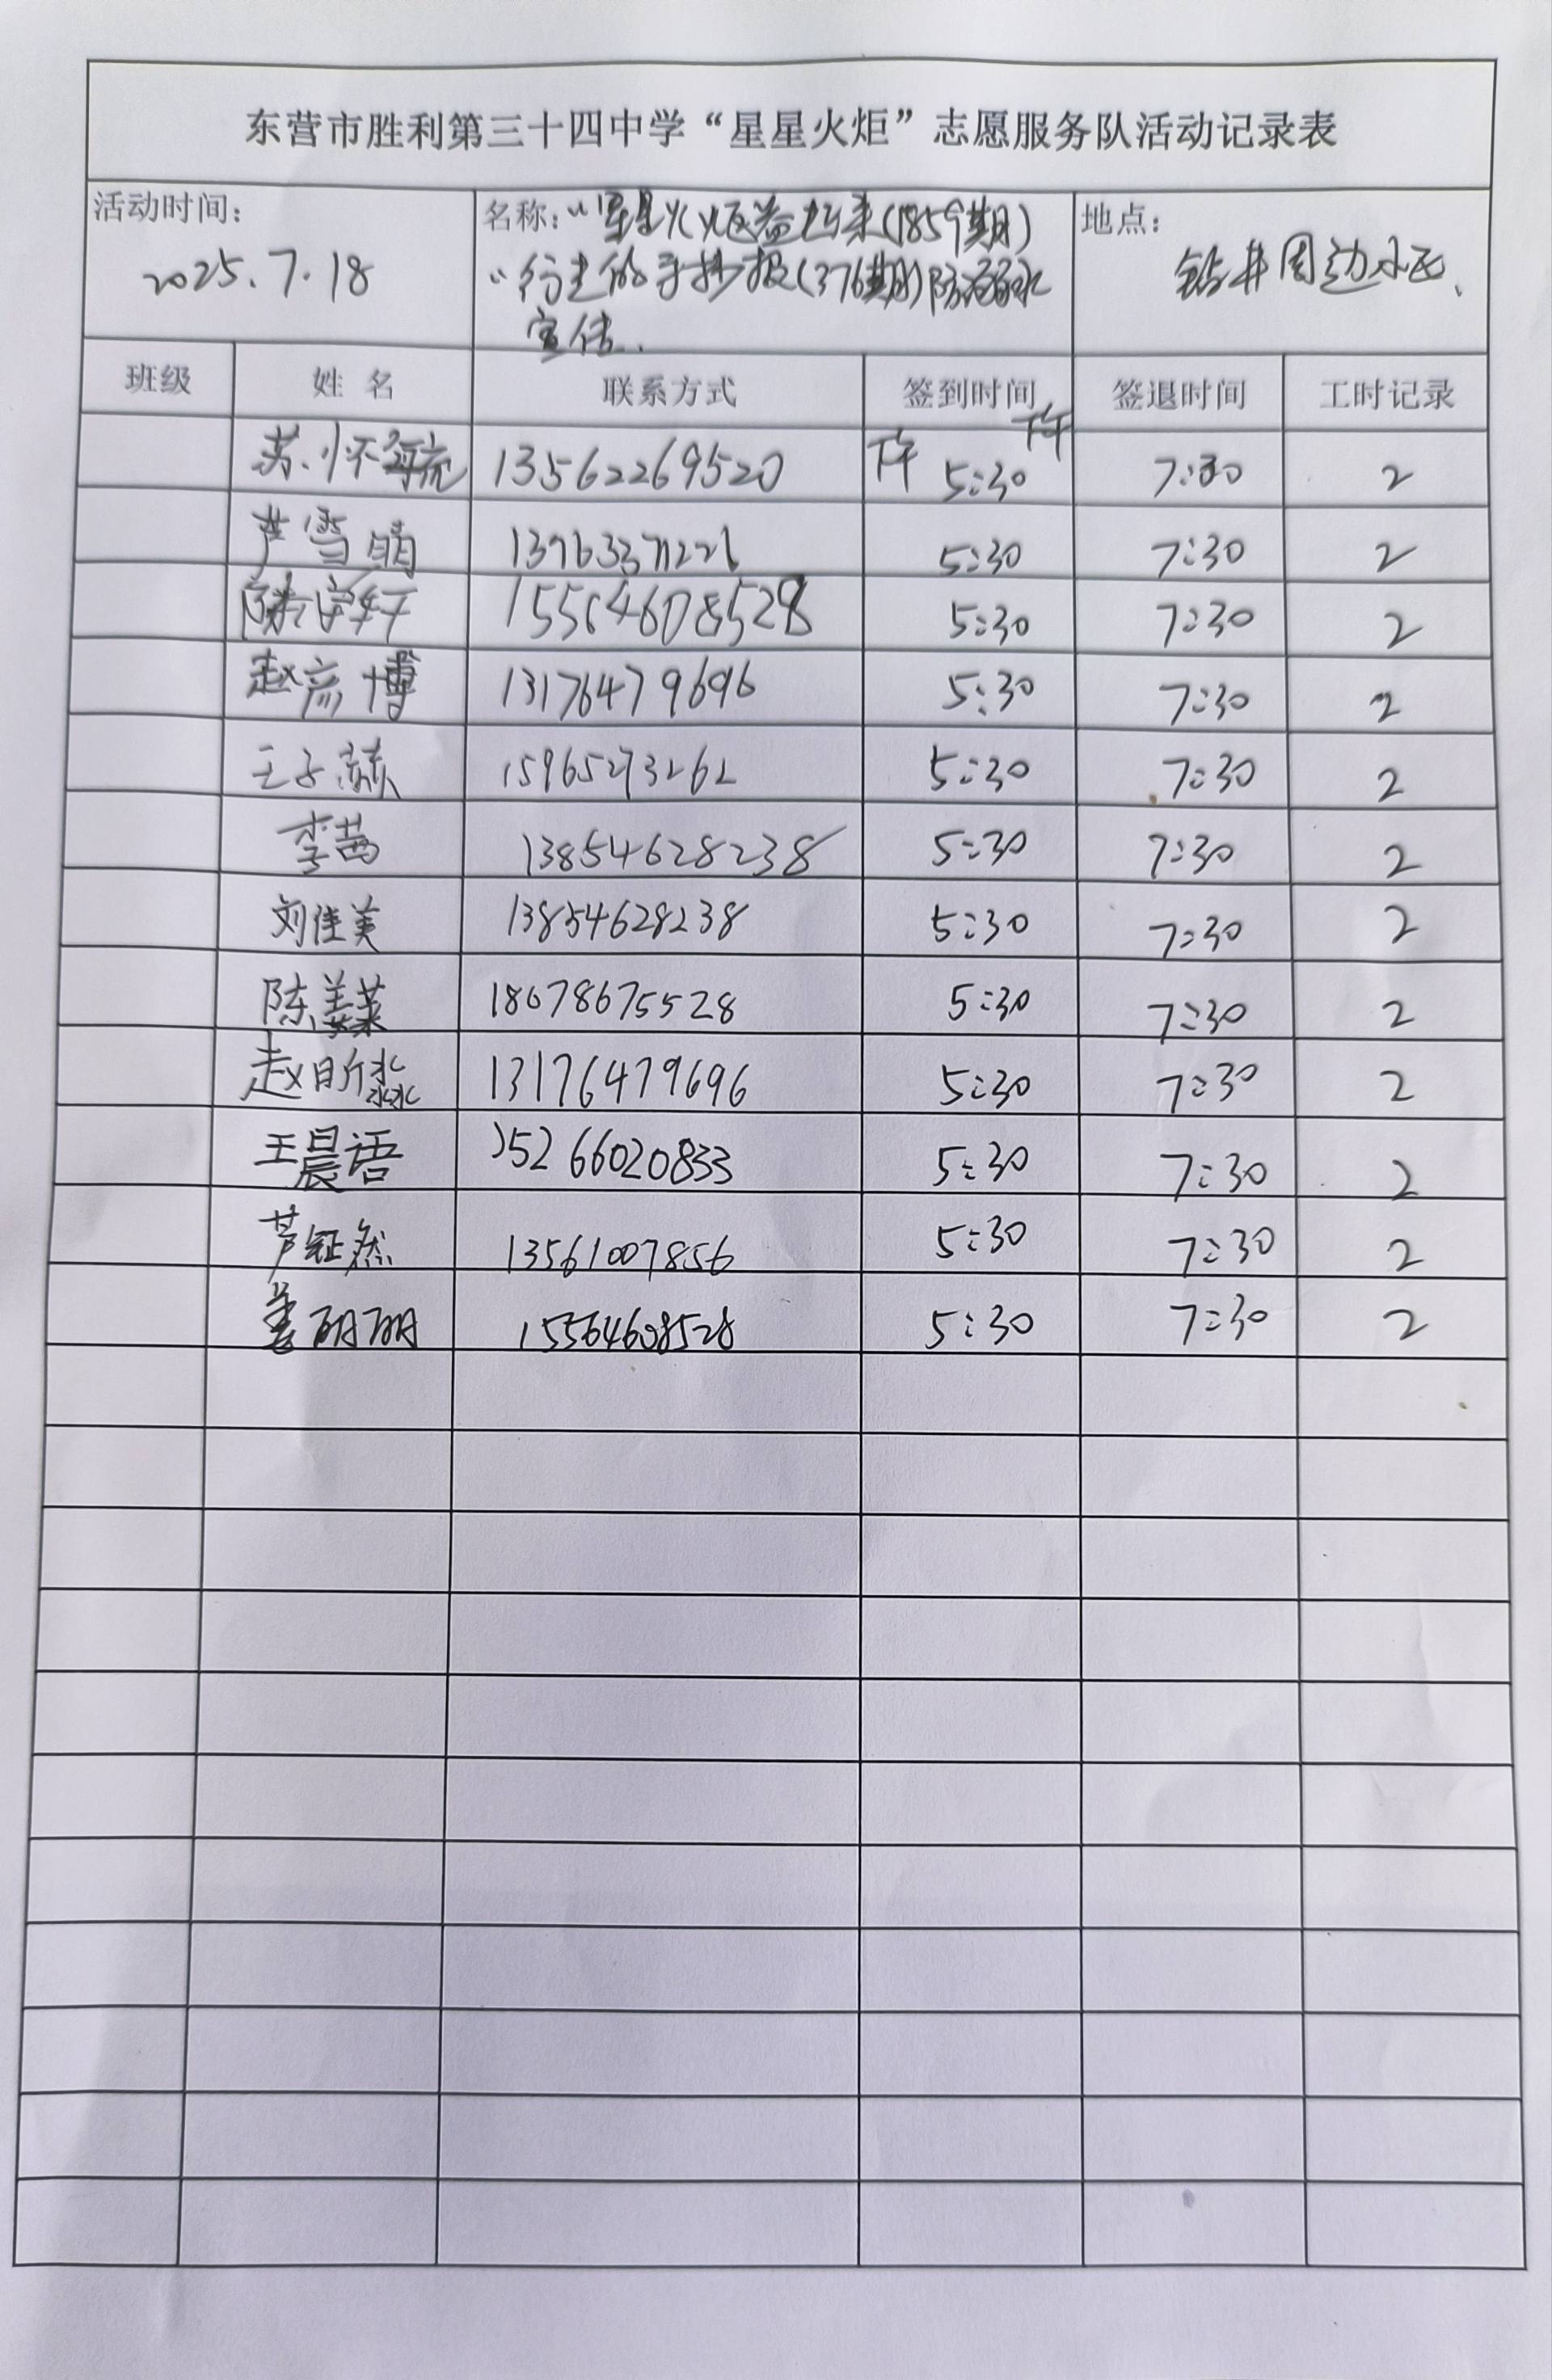 东营市胜利第三十四中学“星星火炬”志愿服务队活动记录表
活动时间: 2025.7.18
名称: “星星火炬益起来(1859期)
“行走的手抄报(376期)防溺水
宣传.
地点: 钻井周边小区.
班级 姓名 联系方式 签到时间 签退时间 工时记录
下午
苏怀毓 13562269520 下午 5:30 7:30 2
芦雪晴 5:30 7:30 2
15564608528 5:30 7:30 2
赵彦博 13176479696 5:30 7:30 2
王子 15965273262 5:30 7:30 2
李茜 13854628238 5:30 7:30 2
刘佳美 13854628238 5:30 7:30 2
陈 18678675528 5:30 7:30 2
赵昕淼 13176479696 5:30 7:30 2
王晨语 15266020833 5:30 7:30 2
芦钲然 13561007856 5:30 7:30 2
姜丽丽 15564608528 5:30 7:30 2